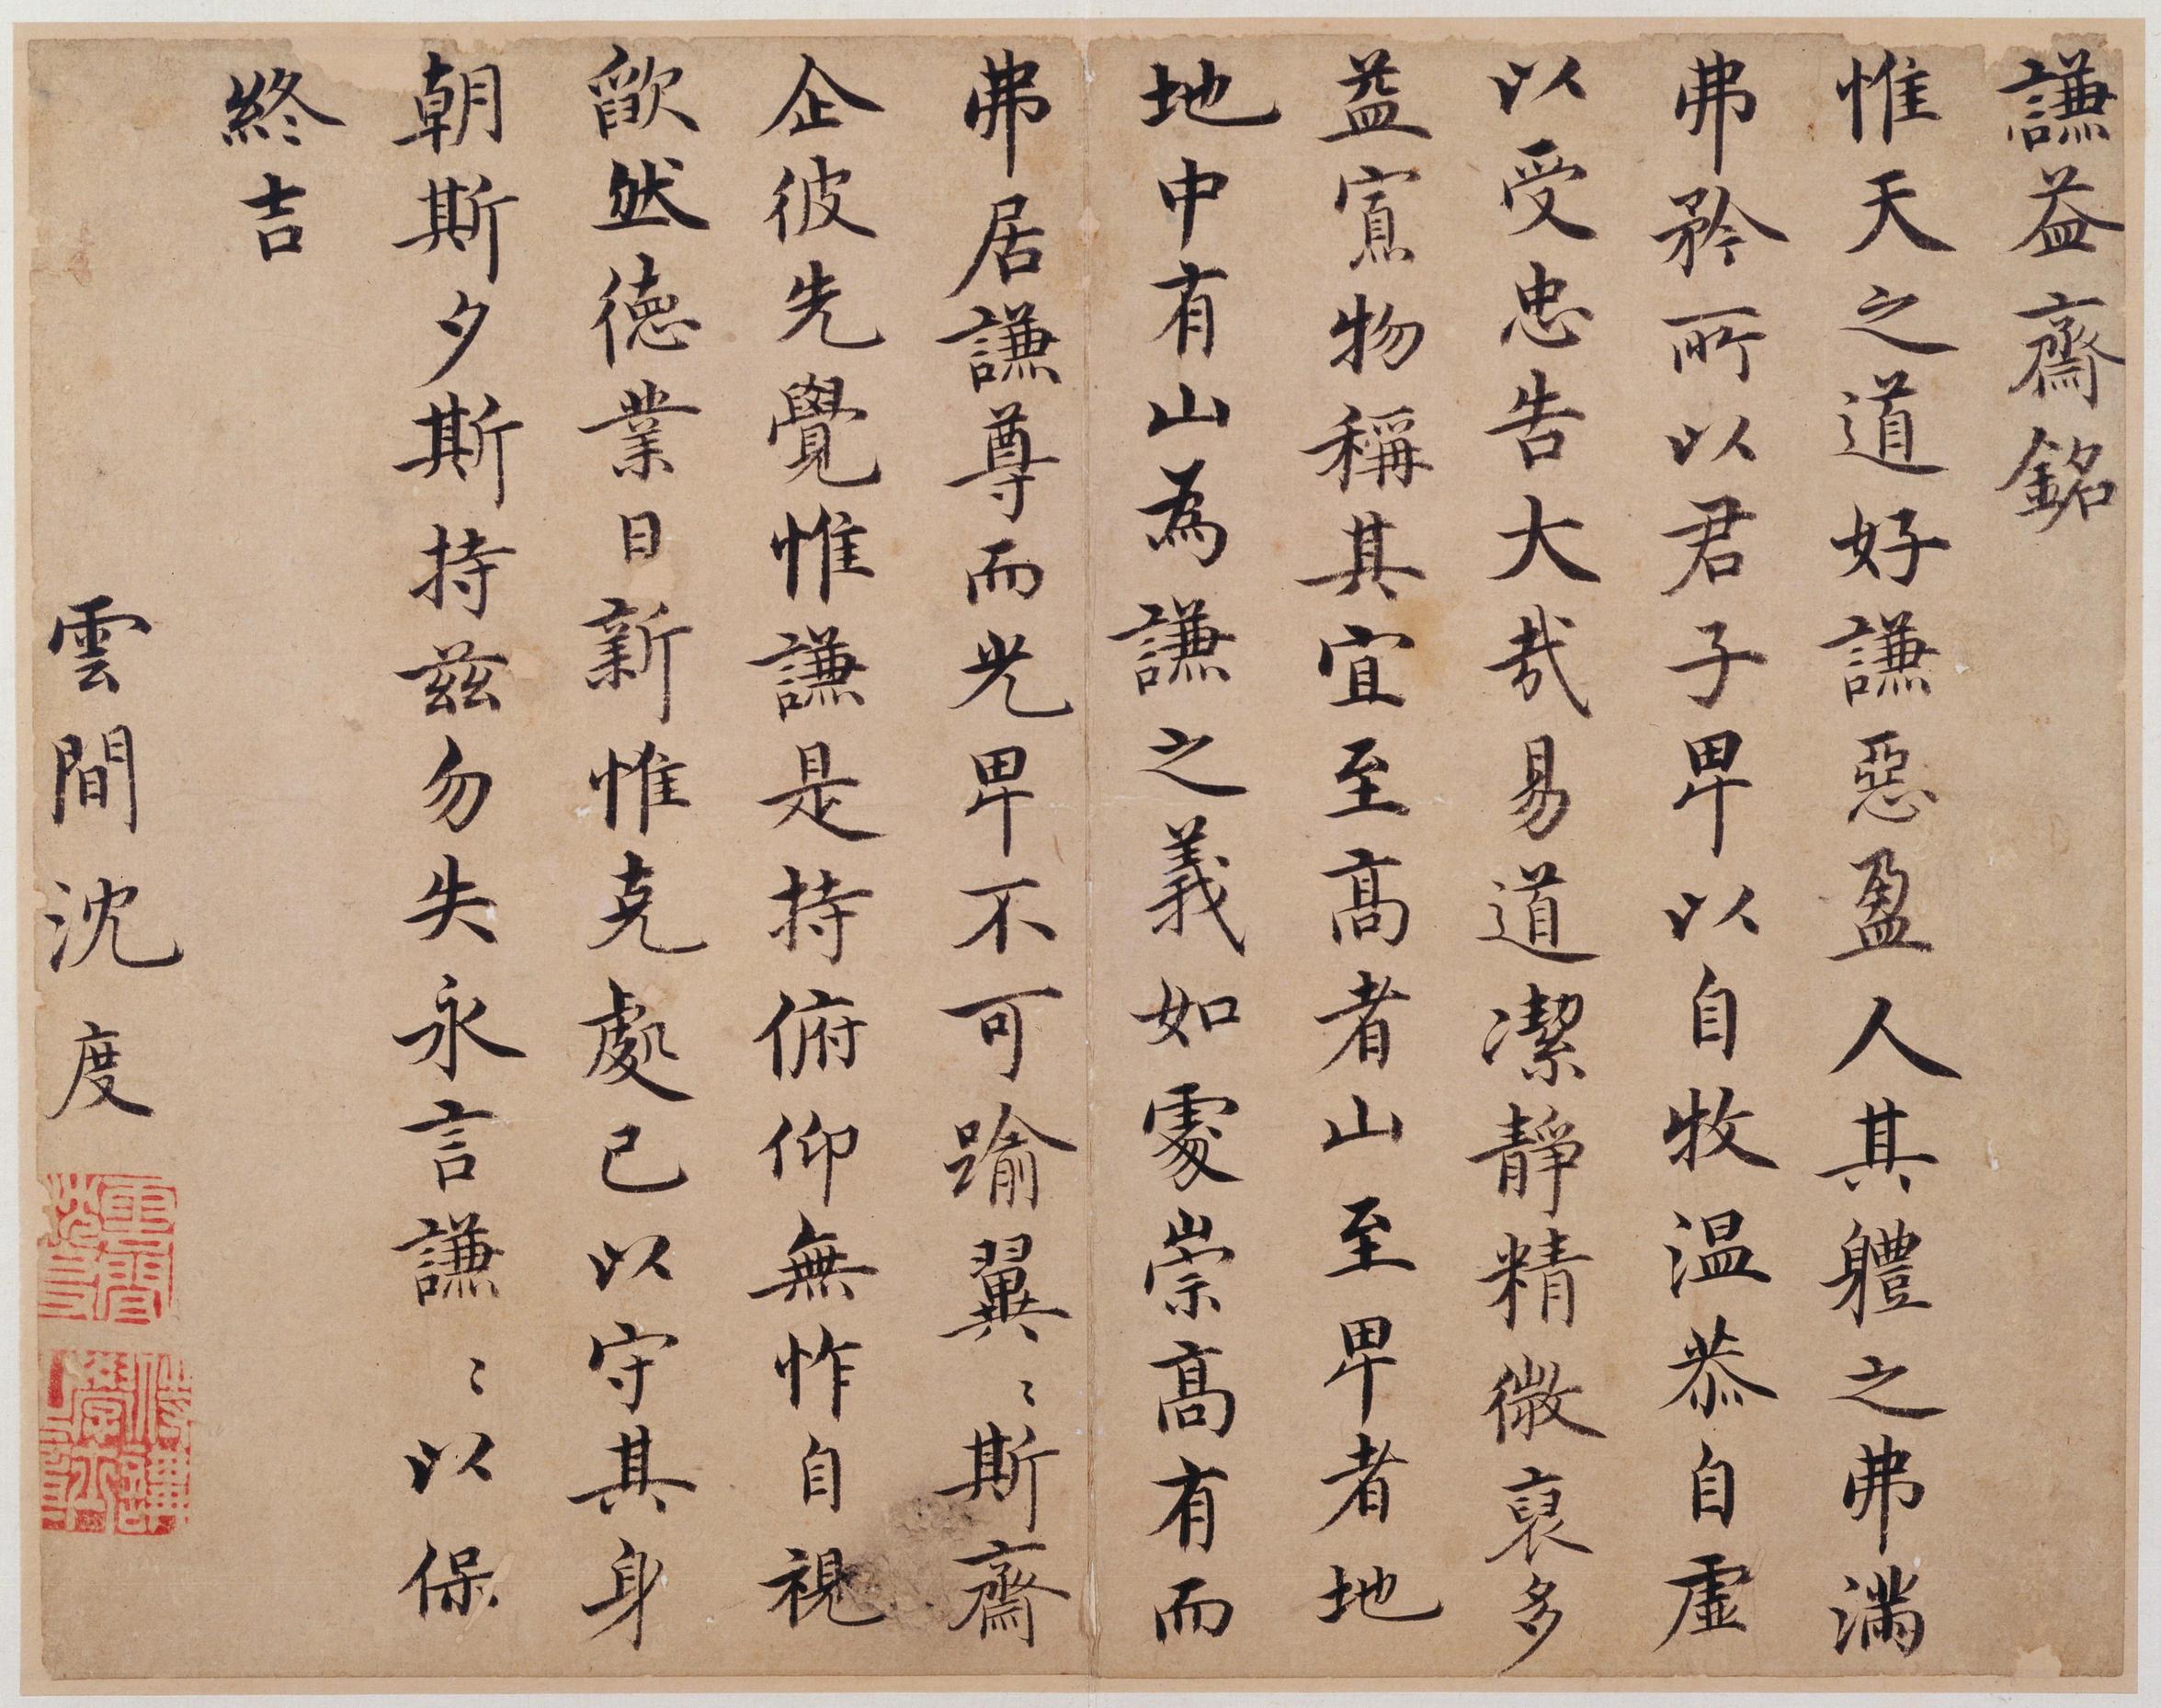 謙益齋銘
惟天之道好謙惡盈人其軆之弗滿
弗矜所以君子卑以自牧温恭自虚
以受忠告大哉易道潔靜精微裒多
益寡物稱其宜至髙者山至卑者地
地中有山為謙之義如處崇髙有而
弗居謙尊而光卑不可踰翼〻斯齋
企彼先覺惟謙是持俯仰無怍自視
歉然德業日新惟克處己以守其身
朝斯夕斯持兹勿失永言謙〻以保
終吉
雲間沈度